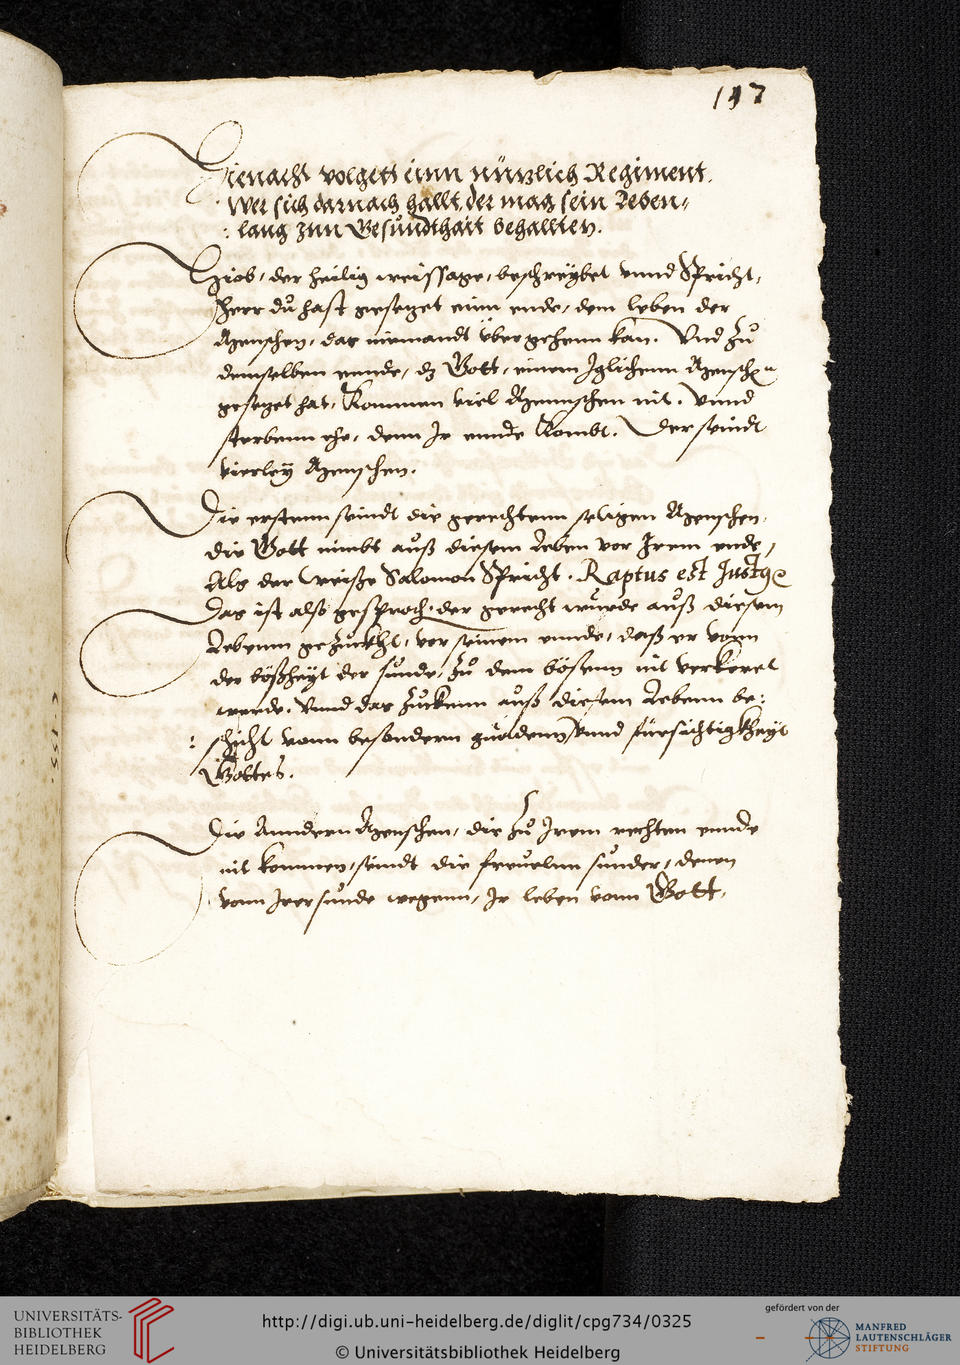 197
Hienach volgett einn nützlich Regiment.
Wer sich darnach hallt, der mag sein Leben-
: lang znn Gesundthait behallten.
Hiob, der heilig weissage, beschreybet vnnd Spricht,
Herr du hast gesetzet einn ende, dem leben der
Menschen, das niemandt übergehenn kan. Vnd zu
demselben ennde, dz Gott, einem Iglichenn Mensch
gesetzet hat, Kommen viel Mennschen nit. Vnnd
sterbenn ehe, denn Ir ennde Kombt. Der seindt
vierley Menschen.
Die erstenn seindt die gerechtenn seligen Menschen,
die Gott nimbt auß diesem Leben vor Irem ende,
Als der Weiße Salomon Spricht. Raptus est Just9
Das ist also gesproch. der gerecht wurde auß diesem
Lebenn gezuckht, vor seinem ennde, daß er vonn
der boßheyt der sunde, zu dem bösenn nit verkeret
werde. Vnnd das zuckenn auß diesem Lebenn be:
: schicht vonn besondern gnadenn Vnnd fürsichtigkheyt
Gottes.
Die Anndern Menschen, die zu Irem rechten ennde
nit kommen, seindt die freuelnn sunder, denen
vonn Irer sunde wegenn, Ir leben vonn Gott,
UNIVERSITÄTS-
BIBLIOTHEK
HEIDELBERG
http://digi.ub.uni-heidelberg.de/diglit/cpg734/0325
© Universitätsbibliothek Heidelberg
gefördert von der
MANFRED
LAUTENSCHLÄGER
STIFTUNG